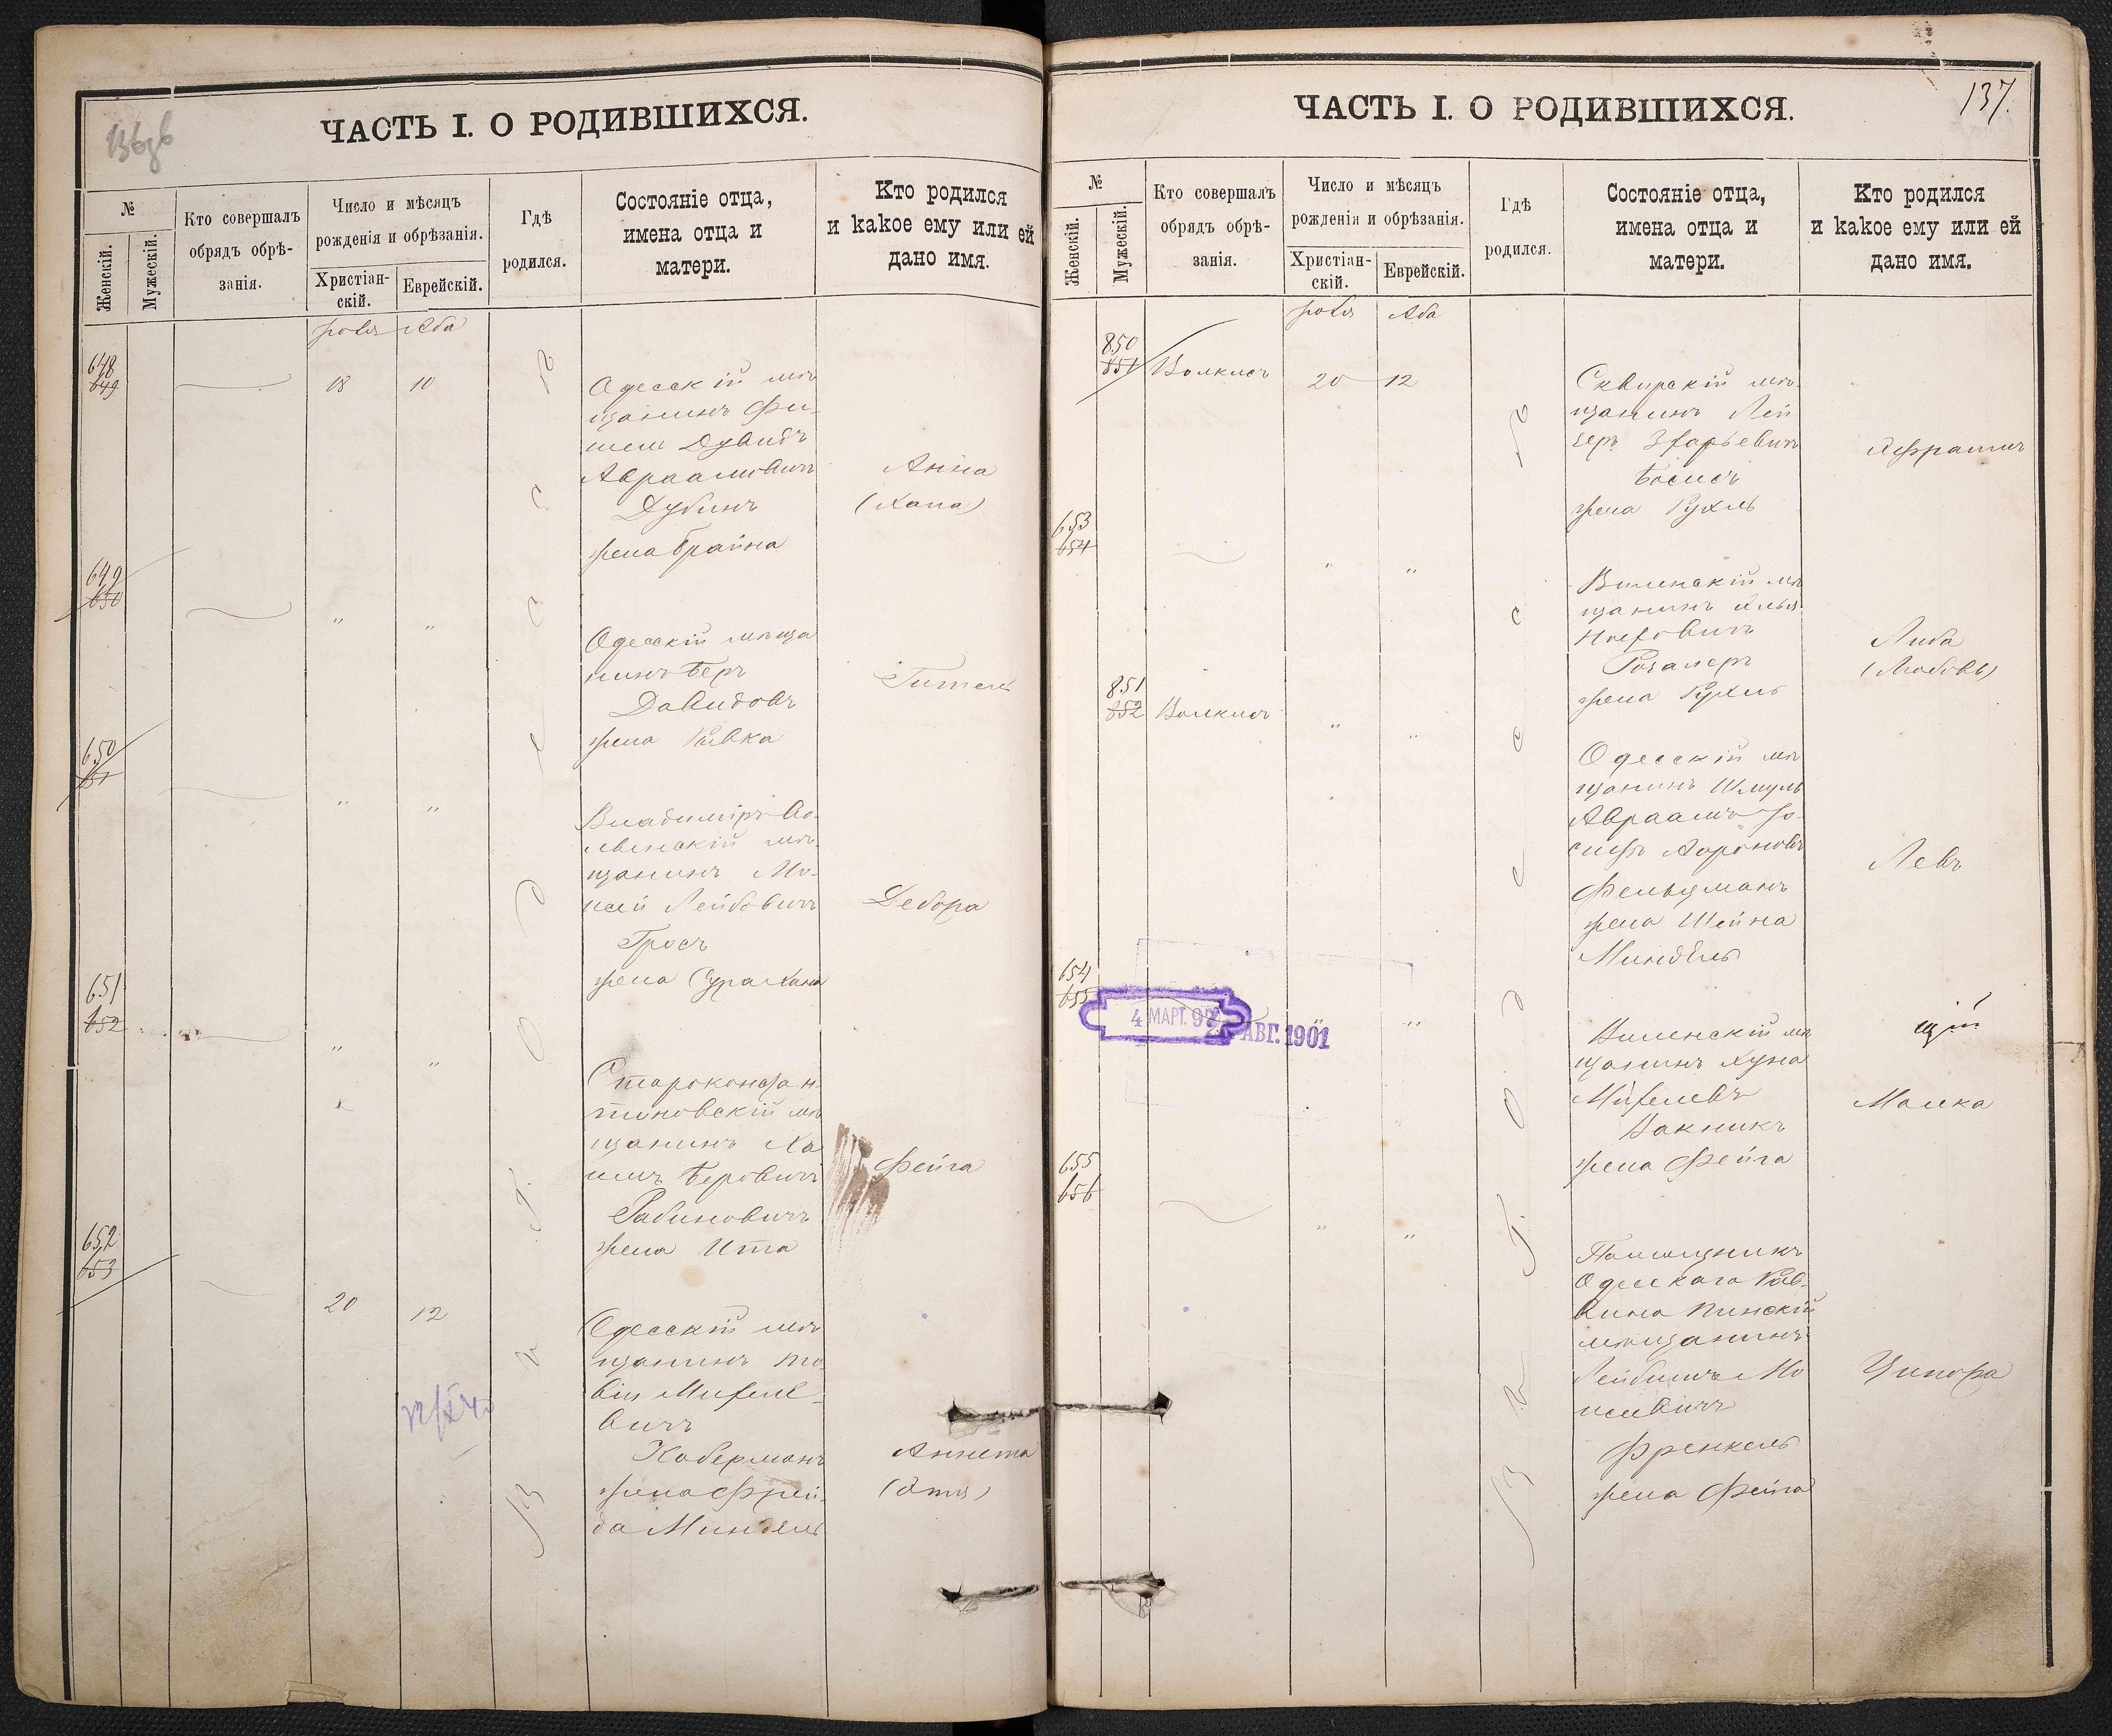 136об
ЧАСТЬ I. О РОДИВШИХСЯ.
№
Женскій.
Мужескій.
Кто совершалъ
обрядъ обрѣ-
занія.
Число и мѣсяцъ
рожденія и обрѣзанія.
Христіан-
скій.
Еврейскій.
Гдѣ
родился.
Состояніе отца,
имена отца и
матери.
Кто родился
и какое ему или ей
дано имя.
Аба
648
649
18
10
Одесскій мѣ
щанинъ Фи-
шель Дувидъ
Авраамовичъ
Дубинъ
жена Брайна
Анна
(Хана)
649
650
"
"
Одесскій мѣща
нинъ Беръ
Давидовъ
жена Ривка
Гитель
650
651
"
"
Владимиръ Во-
лынскій мѣ-
щанинъ Мо-
исей Лейбовичъ
Гросъ
жена Сура Хана
Дебора
651
652
"
"
Староконстан-
тиновскій мѣ
щанинъ Ха
имъ Беровичъ
Рабиновичъ
жена Ита
Фейга
652
653
20
12
Одесскій мѣ
щанинъ То
вичъ
Коберманъ
жена Фрей-
да Миндель
Аннета
въ г. Одессѣ
137.
ЧАСТЬ I. О РОДИВШИХСЯ.
№
Женскій.
Мужескій.
Кто совершалъ
обрядъ обрѣ-
занія.
Число и мѣсяцъ
рожденія и обрѣзанія.
Христіан-
скій.
Еврейскій.
Гдѣ
родился.
Состояніе отца,
имена отца и
матери.
Кто родился
и какое ему или ей
дано имя.
Аба
850
851
Волкисъ
20
12
Сквирскій мѣ-
щанинъ Лей
зеръ
жена Рухль
Ефраимъ
653
654
"
"
Виленскій мѣ
щанинъ Илья
жена Рухль
Либа
(Любовь)
851
852
Волкисъ
"
"
Одесскій мѣ
щанинъ Шмуль
Авраамъ Іо-
сифъ Ароновъ
Фельцманъ
жена Шейна
Миндель
Левъ
654
655
4 МАРТ. 97
АВГ. 1901
"
Виленскій мѣ
щанинъ Хуна
Закникъ
жена Фейга
Малка
655
656
"
"
Помощникъ
Одесскаго Рав-
вина Пинскій
мѣщанинъ
Лейбишъ Мо
исевичъ
Френкель
жена Фейга
Ципора